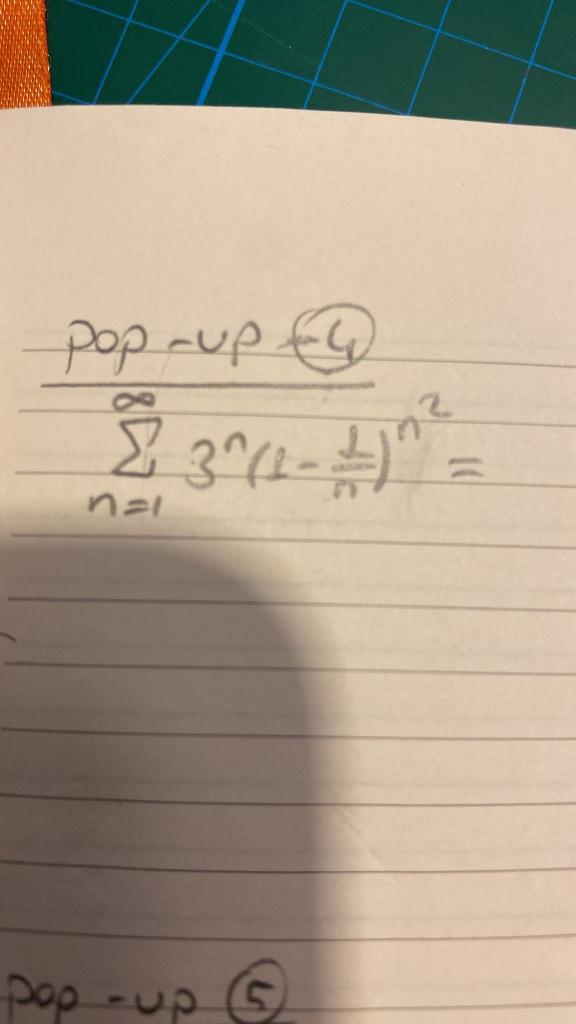 pop-up - 4
∞
Σ 3ⁿ(1 - 1/n)ⁿ² =
n=1
pop-up 5